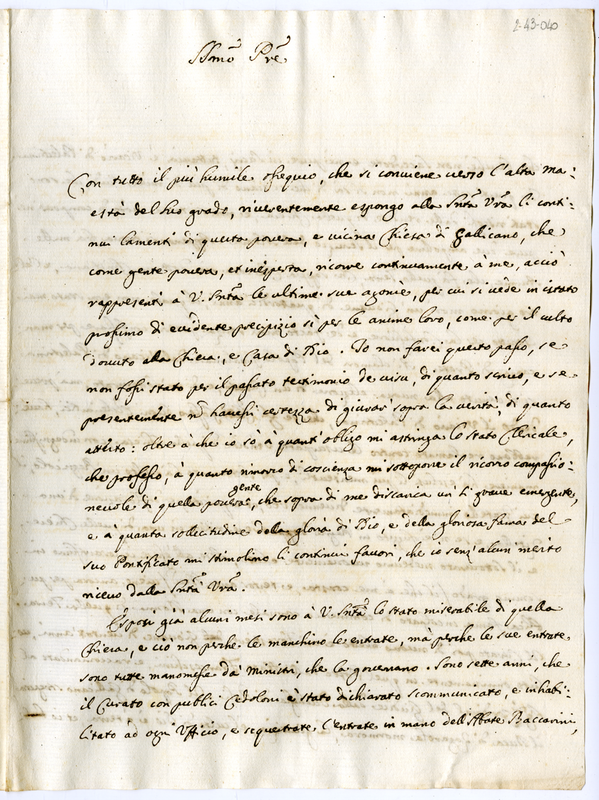 2-43-040
SSmo Pre
Con tutto il più humile ossequio, che si conviene verso l'alta ma=
està del suo grado, riverentemente espongo alla Sntà Vrà li conti=
nui lamenti di questa povera, e vicina Chiesa di Gallicano, che
come gente povera, et inesperta, ricorre continuamente à me, acciò
rappresenti à V. Sntà le ultime sue agonie, per cui si vede in istato
prossimo di evidente precipizio sì per le anime loro, come per il culto
dovuto alla Chiesa, e Casa di Dio. Io non farei questo passo, se
non fossi stato per il passato testimonio de visu, di quanto scrivo, e se
presentemente nō havessi certezza di giurar sopra la verità, di quanto
attesto: oltre à che io sò à quant' obligo mi astringa lo stato Clericale,
che professo, à quanto rimorso di coscienza mi sottopone il ricorso compassio=
nevole di quella povera gente, che sopra di me discarica un sì grave emergente,
e à quanta sollecitudine della gloria di Dio, e della gloriosa fama del
suo Pontificato mi stimolino li continui favori, che io senz'alcun merito
ricevo dalla Sntà Vrà.
Esposi già alcuni mesi sono à V. Sntà lo stato miserabile di quella
Chiesa, e ciò non perche le manchino le entrate, mà perche le sue entrate
sono tutte manomesse dà Ministri, che la governano. Sono sette anni, che
il Curato con publici Cedoloni è stato dichiarato scommunicato, e inhabi=
litato ad ogni Ufficio, e sequestrate l'entrate in mano dell'Abate Baccarini,